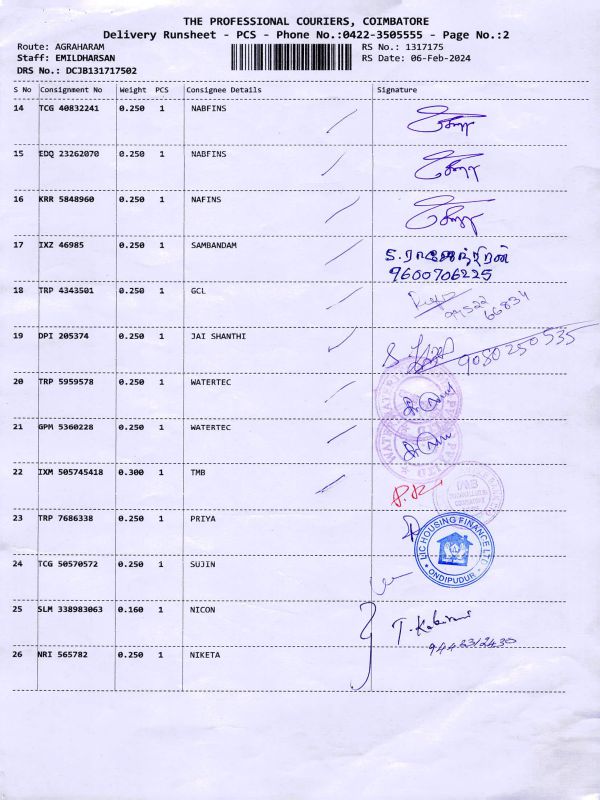 THE PROFESSIONAL COURIERS, COIMBATORE
Delivery Runsheet - PCS - Phone No.:0422-3505555 - Page No.:2
Route: AGRAHARAM RS No.: 1317175
Staff: EMILDHARSAN RS Date: 06-Feb-2024
DRS No.: DCJB131717502
S No Consignment No Weight PCS Consignee Details Signature
14 TCG 40832241 0.250 1 NABFINS
15 EDQ 23262070 0.250 1 NABFINS
16 KRR 5848960 0.250 1 NAFINS
17 IXZ 46985 0.250 1 SAMBANDAM
9600706225
18 TRP 4343501 0.250 1 GCL
99522 66834
19 DPI 205374 0.250 1 JAI SHANTHI
9080250535
20 TRP 5959578 0.250 1 WATERTEC
21 GPM 5360228 0.250 1 WATERTEC
22 IXM 505745418 0.300 1 TMB
23 TRP 7686338 0.250 1 PRIYA
LIC HOUSING FINANCE LTD
ONDIPUDUR
24 TCG 50570572 0.250 1 SUJIN
25 SLM 338983063 0.160 1 NICON
9442312430
26 NRI 565782 0.250 1 NIKETA